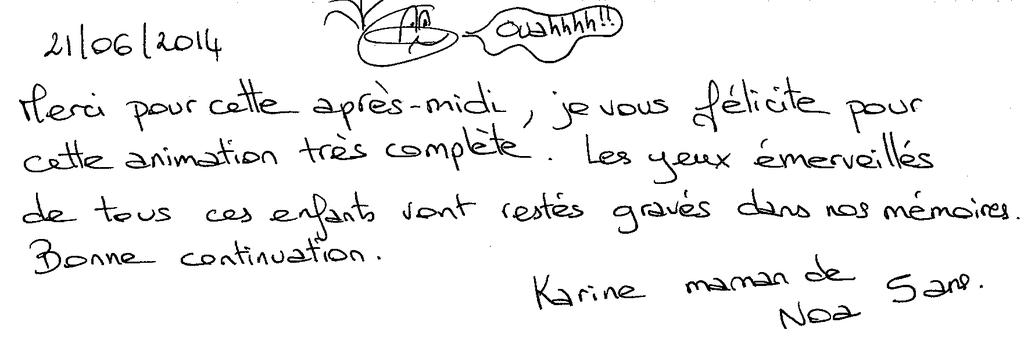 21/06/2014
Ouahhhh!!
Merci pour cette après-midi, je vous félicite pour
cette animation très complète. Les yeux émerveillés
de tous ces enfants vont restés gravés dans nos mémoires.
Bonne continuation.
Karine maman de
Noa 5 ans.